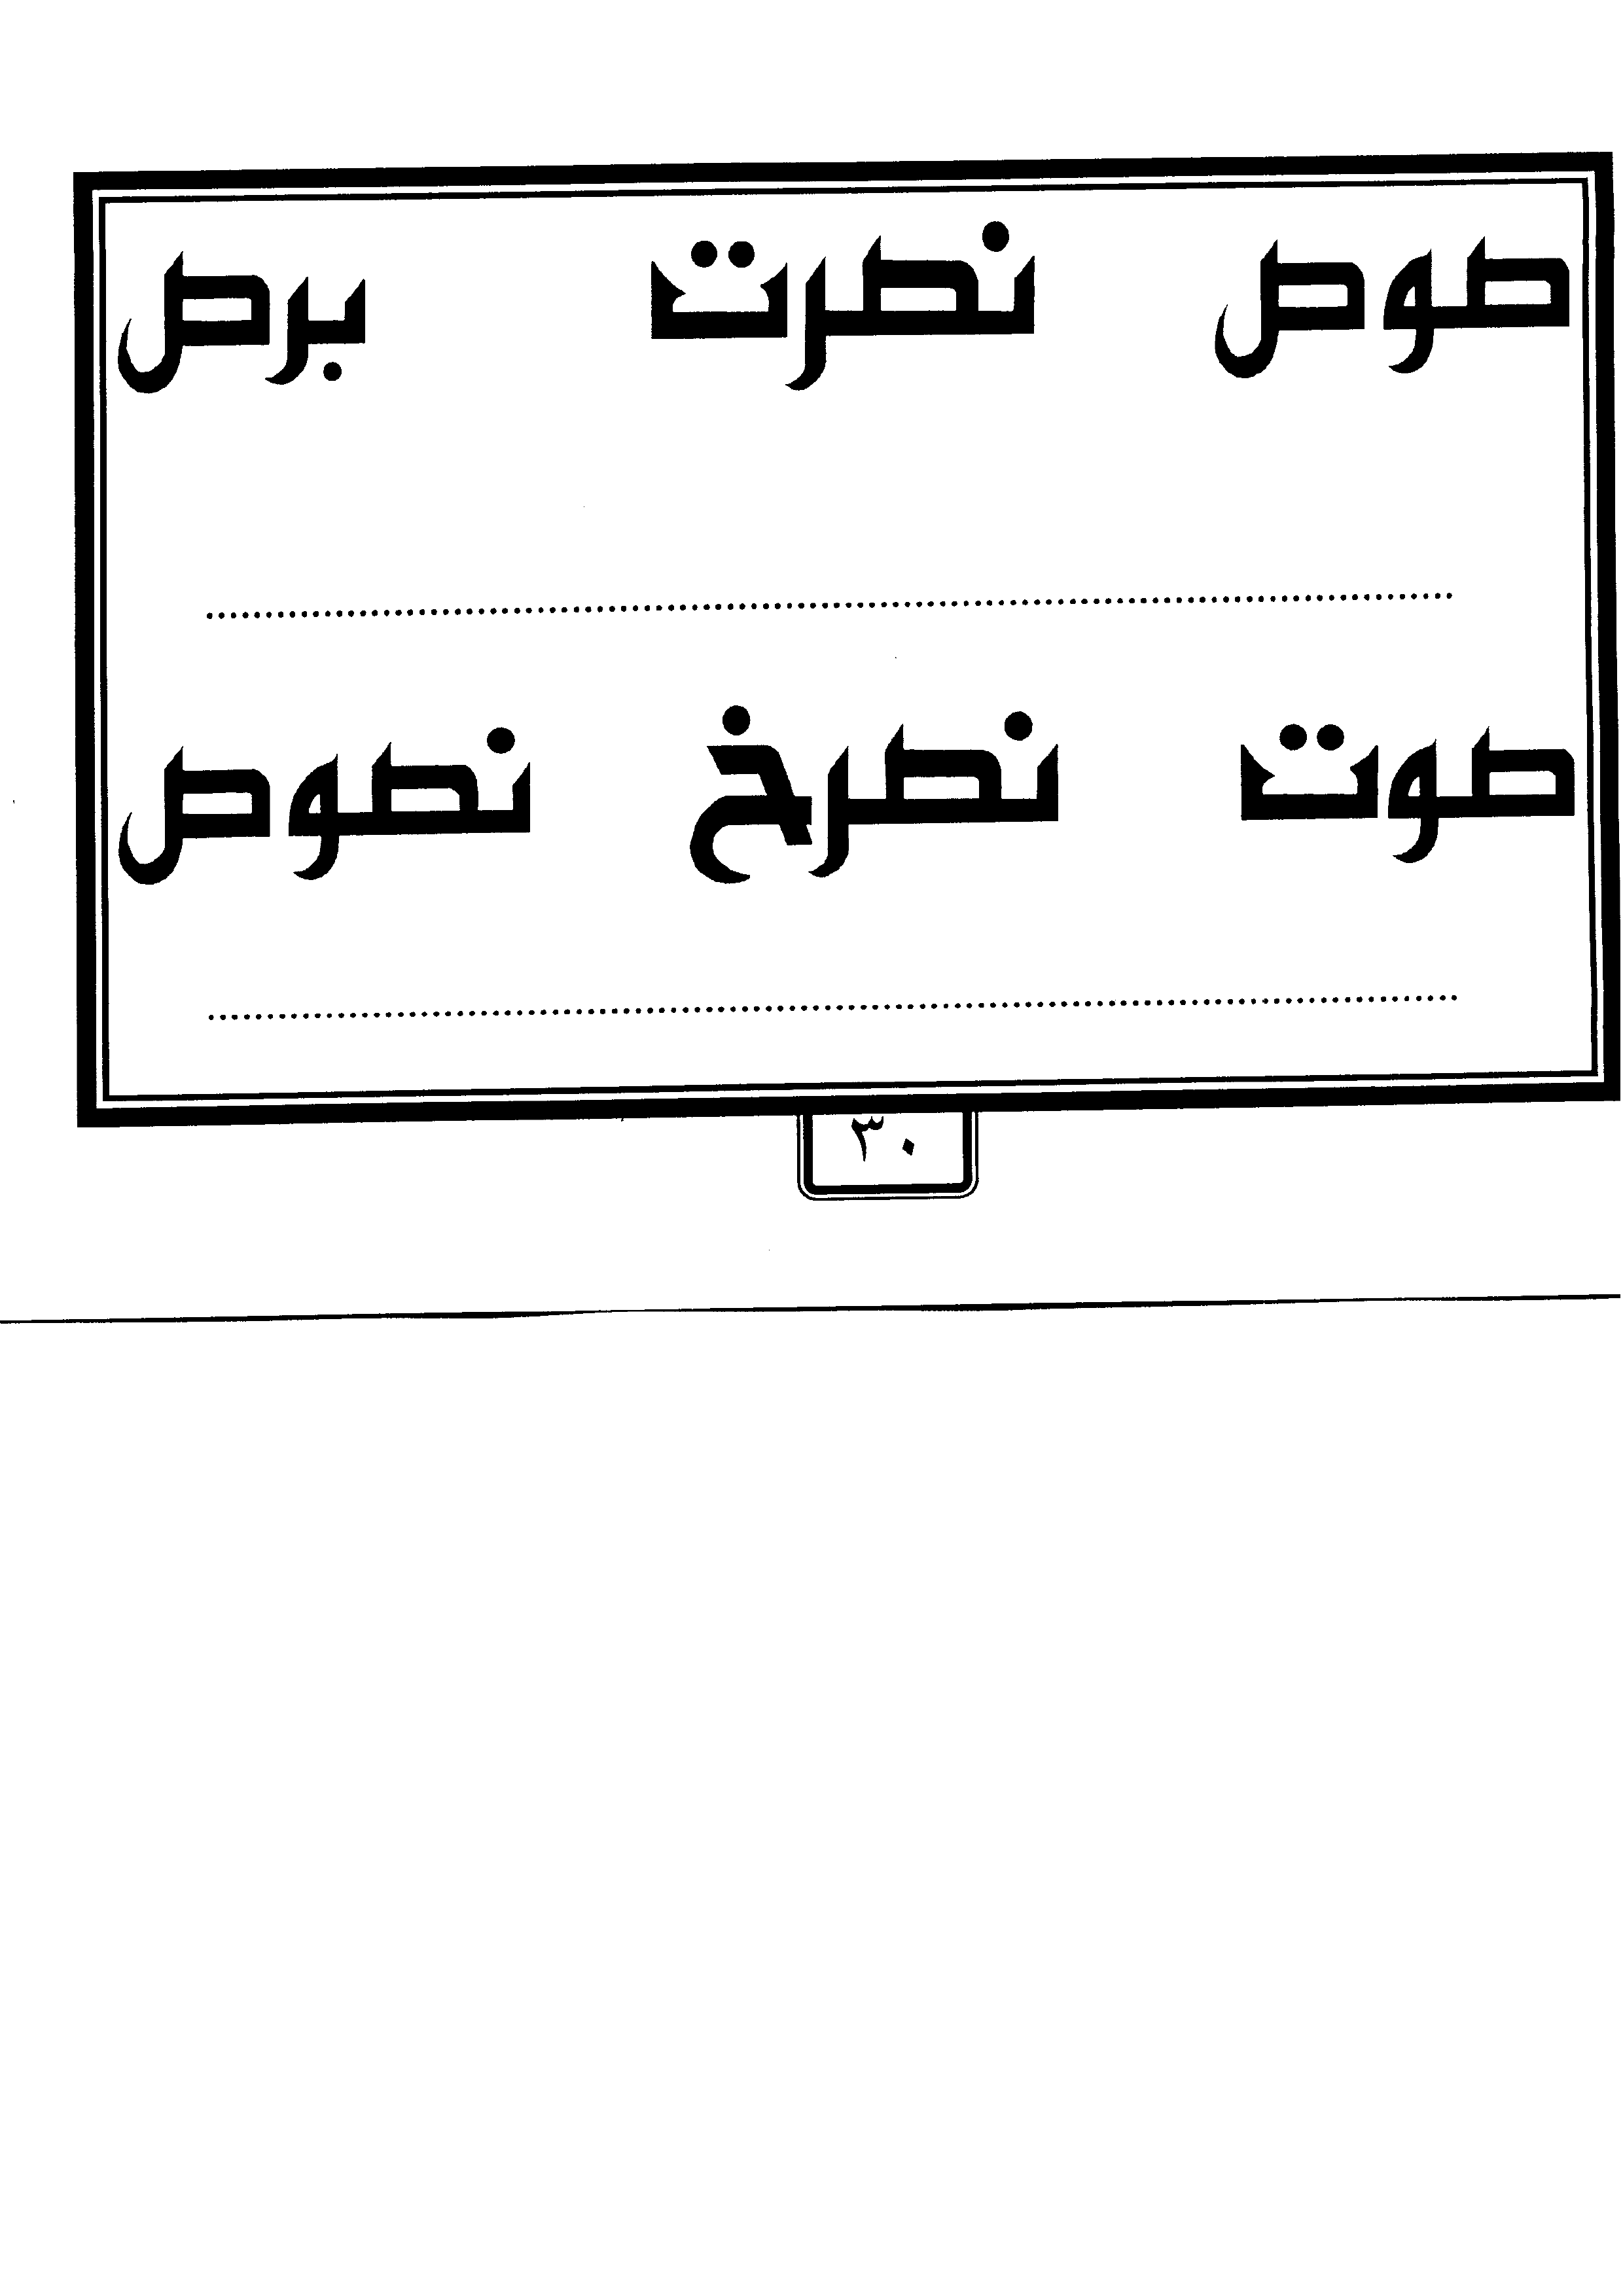 صوص نصرت برص
صوت نصرخ نصوص
٣٠